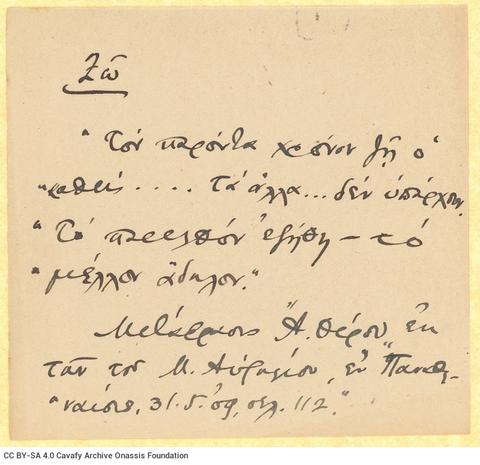 Ζῶ
"Τὸν παρόντα χρόνον ζῇ ὁ
"καθείς .... τὰ ἄλλα... δὲν ὑπάρχουν.
"Τὸ παρελθὸν ἐζήθη — τὸ
"μέλλον ἄδηλον."
Μετάφρασις Ἀ. Θέρου ἐκ
τῶν τοῦ Μ. Αὐρηλίου, ἐν "Παναθη-
"ναίοις, 31.5.09, σελ. 112."
CC BY-SA 4.0 Cavafy Archive Onassis Foundation